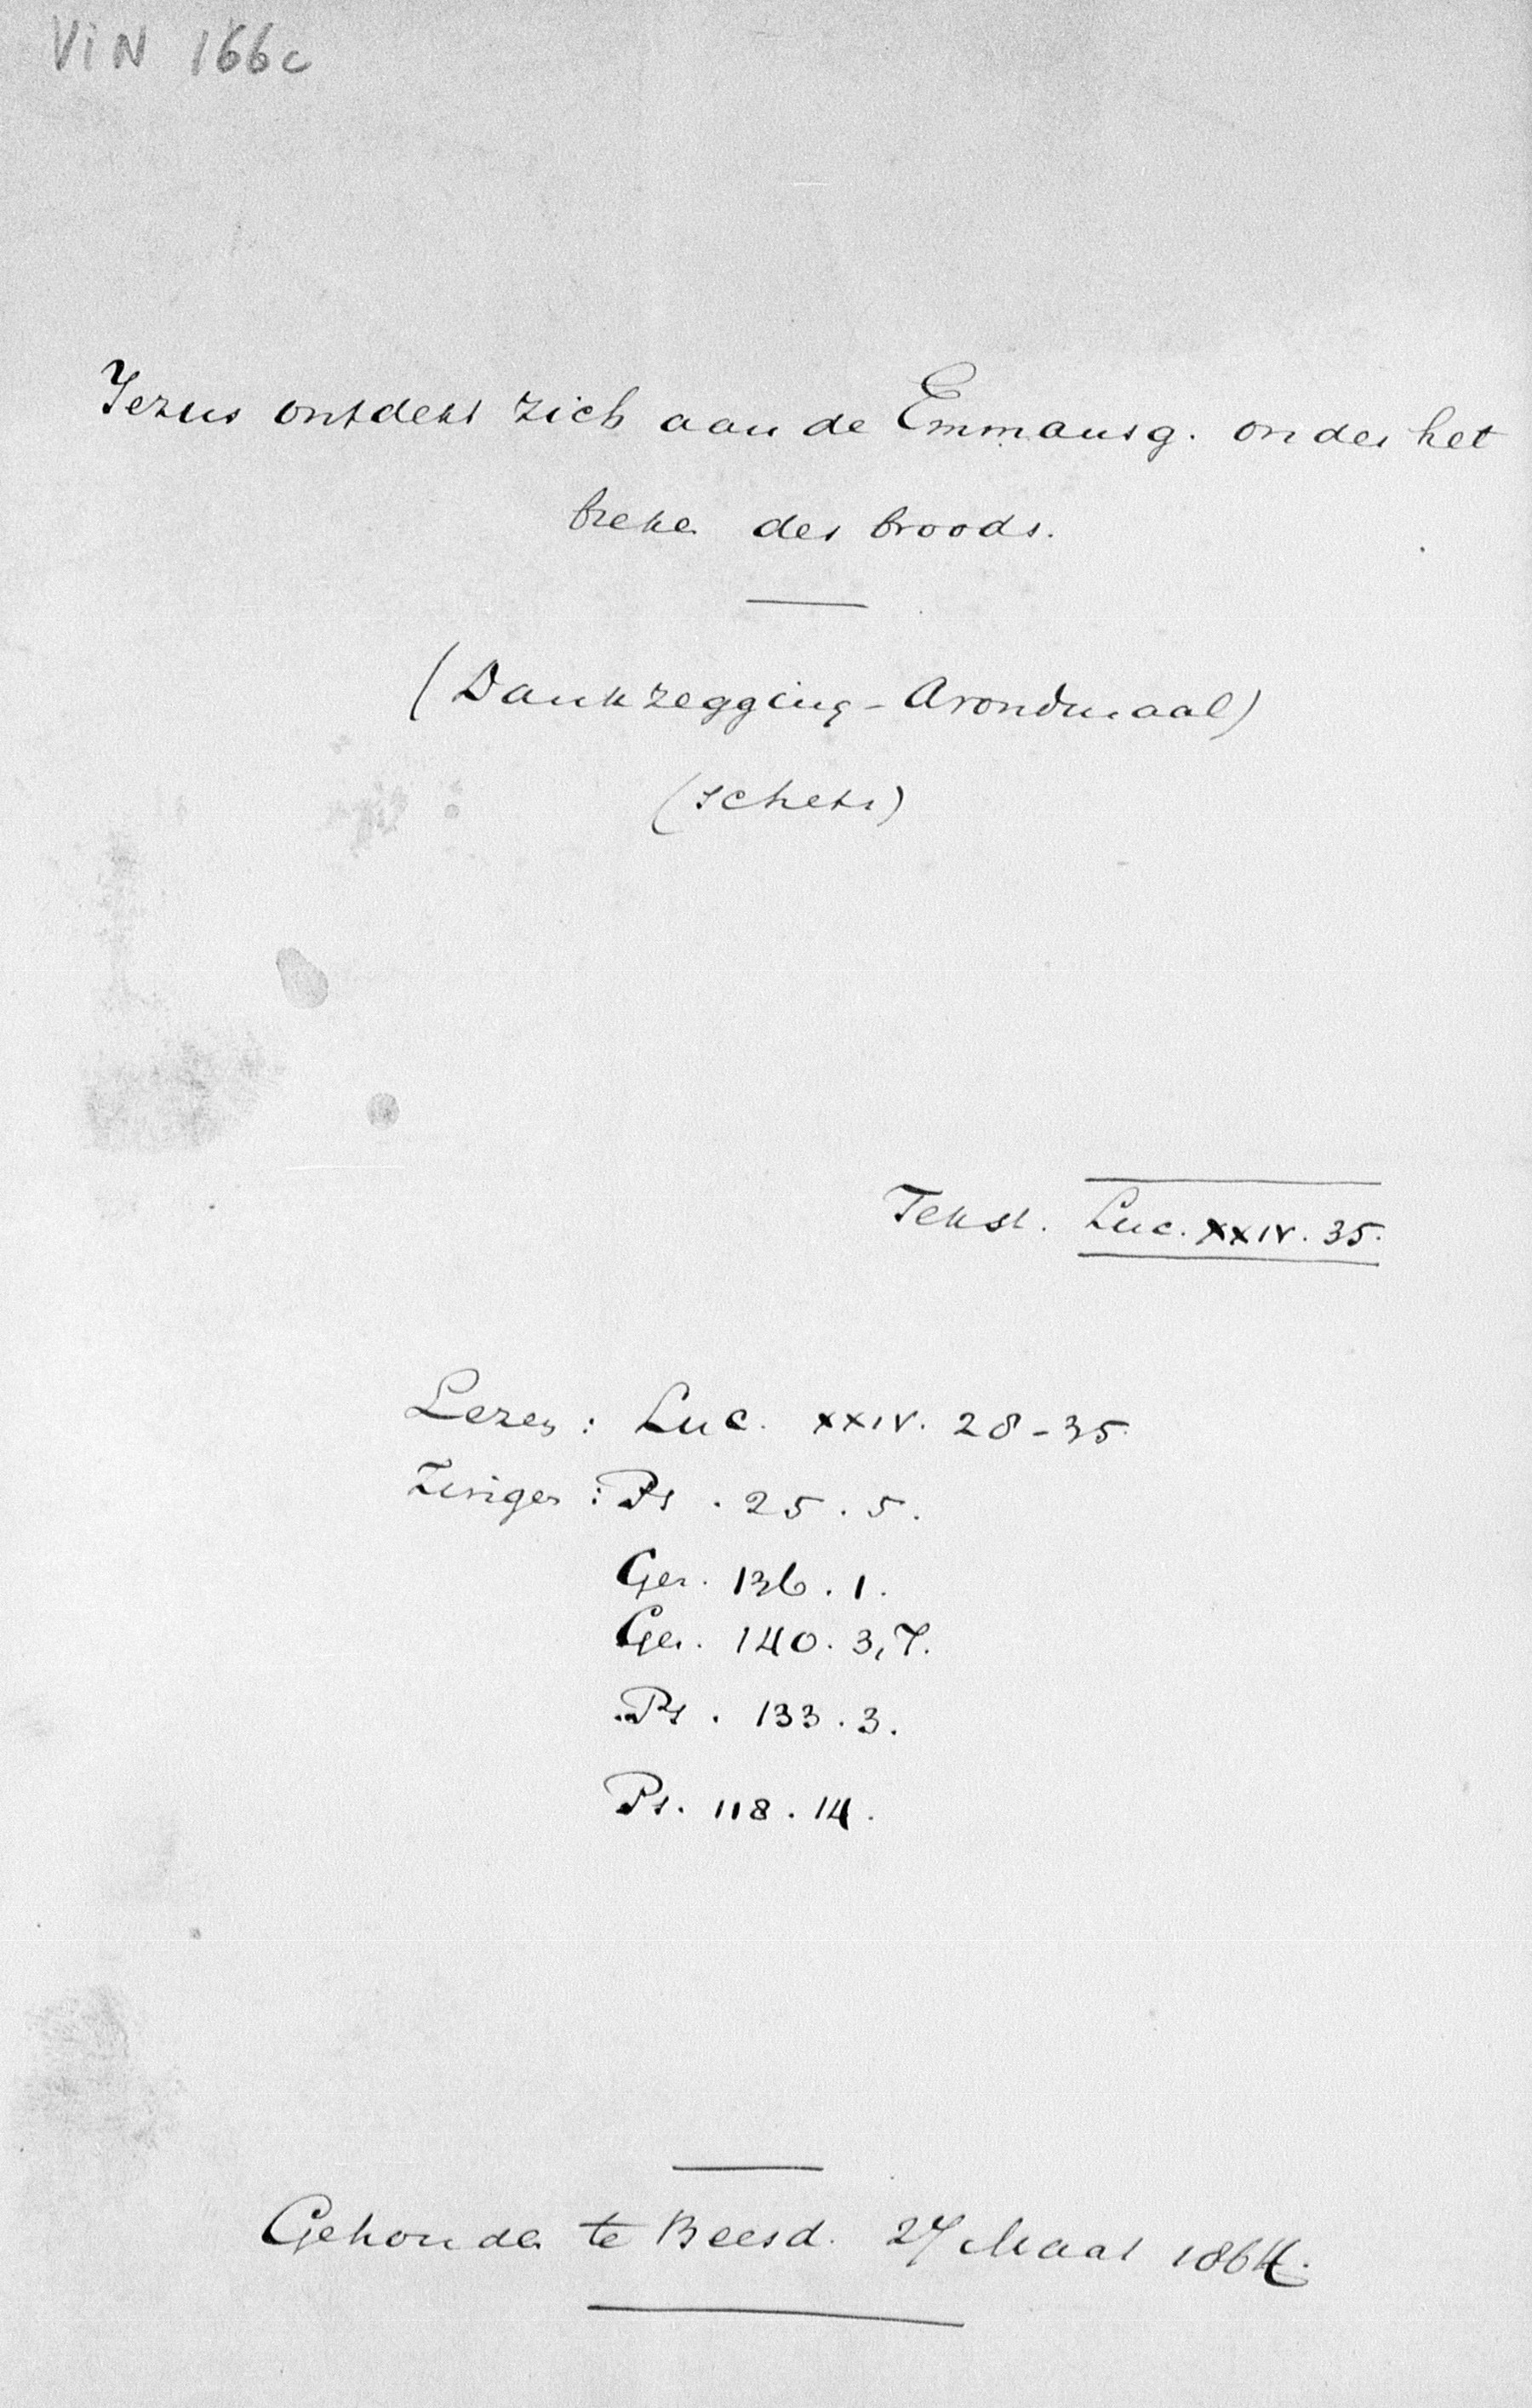 VIN 166c
Jezus ontdekt zich aan de Emmausg. onder het
breken des broods.
(Dankzegging - Avondmaal)
(schets)
Tekst. Luc. XXIV. 35.
Lezen : Luc. XXIV. 28-35.
Zingen : Ps. 25. 5.
Gez. 136. 1.
Gez. 140. 3, 7.
Ps. 133. 3.
Ps. 118. 14.
Gehouden te Beesd. 27 Maart 1864.